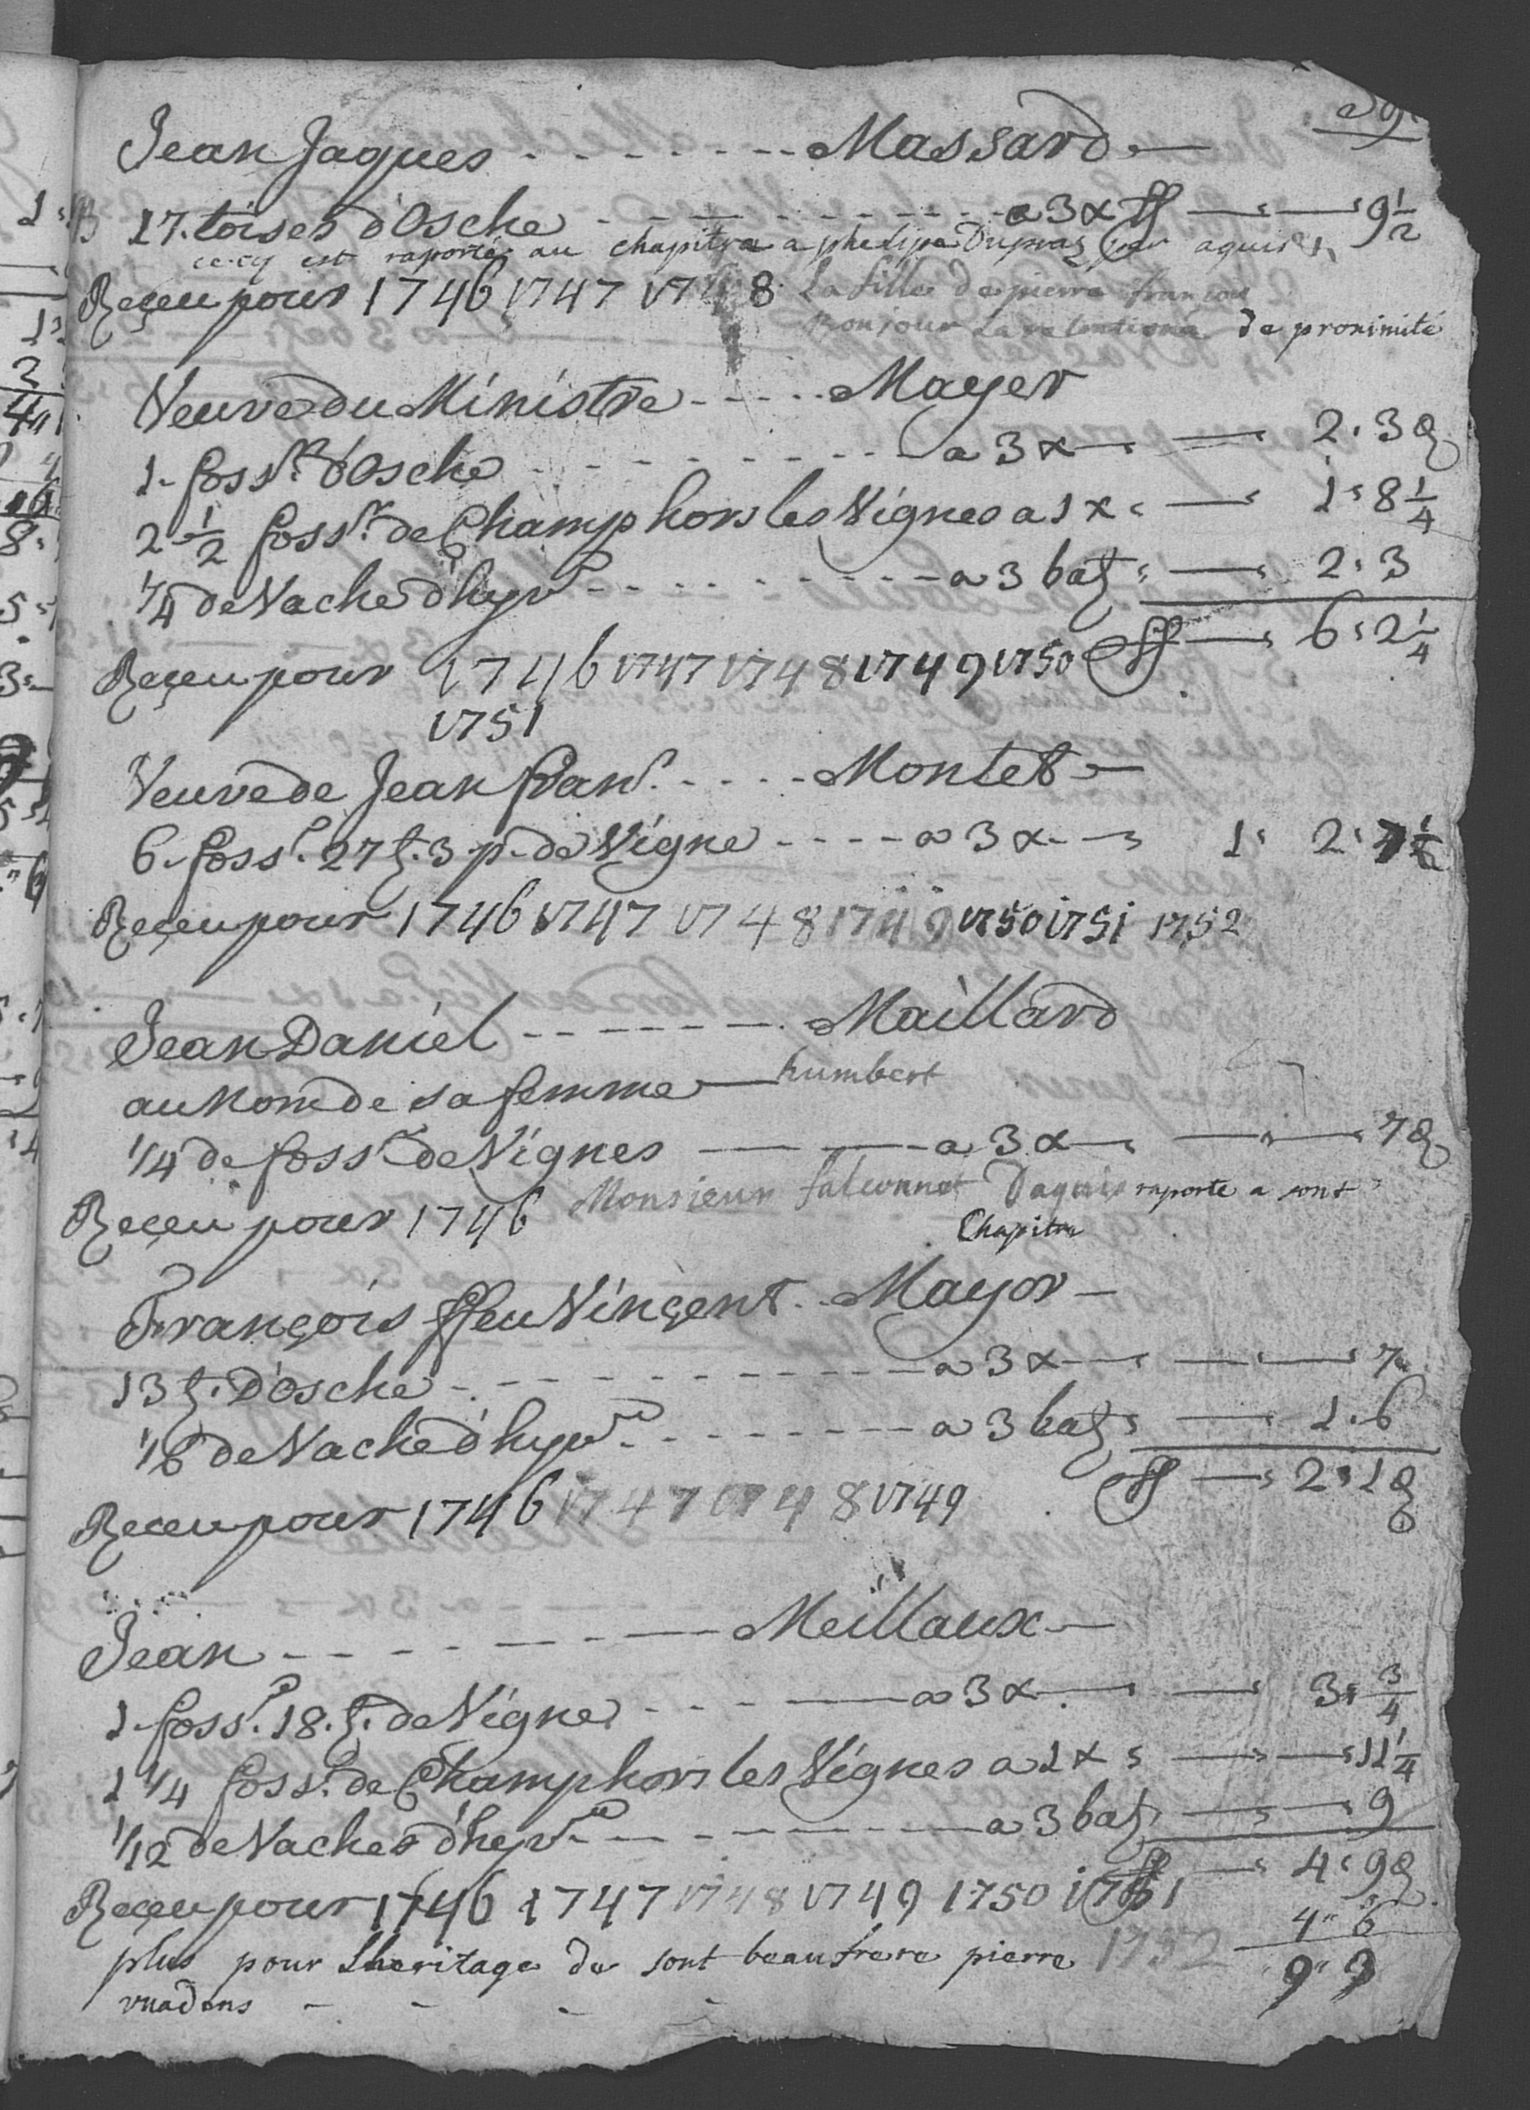 Jean Jaques - - - - - - - Massard —
17. toises d'Osche - - - - - - - a 3 x ff — — 9 1/2
cecy est raporté au chapitre a phelipe Dupraz par aquis
Reçeu pour 1746 1747 1748 La fille de pierre francois
Bonjour La de proximité
Veuve du Ministre - - - - - Mayer
1. foss.r d'Osche - - - - - - - a 3 x — — 2. 3
2 1/2 foss.r de Champ hors les Vignes a 1 x — 1. 8 1/4
1/4 de Vache d'hyv.e - - - - - - - a 3 batz — 2. 3
ff — 6. 2 1/4
Reçeu pour 1746 1747 1748 1749 1750
1751
Veuve de Jean fran.s - - - - Montet —
6. foss.r 27 t. 3 p. de Vigne - - - - a 3 x — 1. 2.
Reçeu pour 1746 1747 1748 1749 1750 1751 1752
Jean Daniel - - - - - - - Maillard
au Nom de sa femme — humbert
1/4 de foss.r de Vignes — — a 3 x — — 7
Monsieur falconnet Daquis raporte a sont
Reçeu pour 1746
Chapitre
François ffeu Vinçent - - Mayor —
13 t. D'Osche - - - - - - - - a 3 x — — 7
1/6 de Vache d'hyv.e - - - - - - - a 3 batz — 1. 6
ff — 2. 1
Reçeu pour 1746 1747 1748 1749
Jean - - - - - - — Meillaux —
1. foss.r 18. t. de Vigne - - - — a 3 x — — 3. 3/4
1 1/4 foss.r de Champ hors les Vignes a 1 x — — 11 1/4
1/12 de Vaches d'hyv.e - - - - - — a 3 batz — — 9
ff — 4. 9
Reçeu pour 1746 1747 1748 1749 1750 1751
4" 6
plus pour Lheritage de sont beaufrere pierre 1752
9" 3
vuadens - - - -